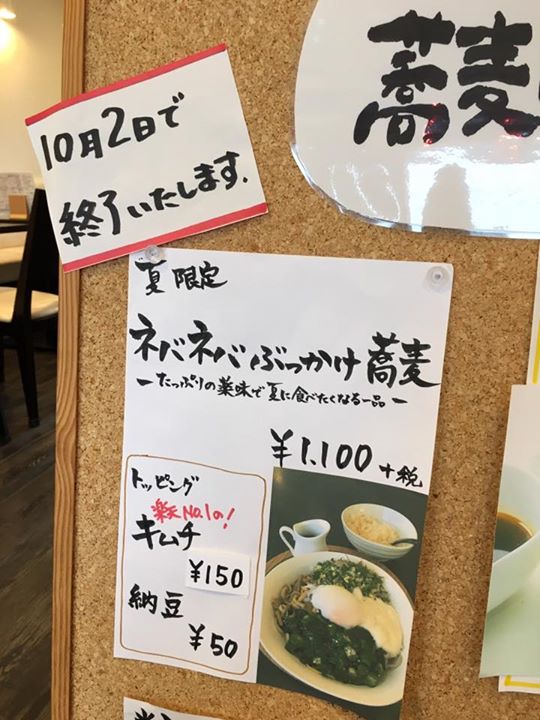 蕎麦
10月2日で
終了いたします.
夏限定
ネバネバぶっかけ蕎麦
ーたっぷりの薬味で夏に食べたくなる一品ー
¥1,100+税
トッピング
楽天No.1の!
キムチ
¥150
納豆
¥50